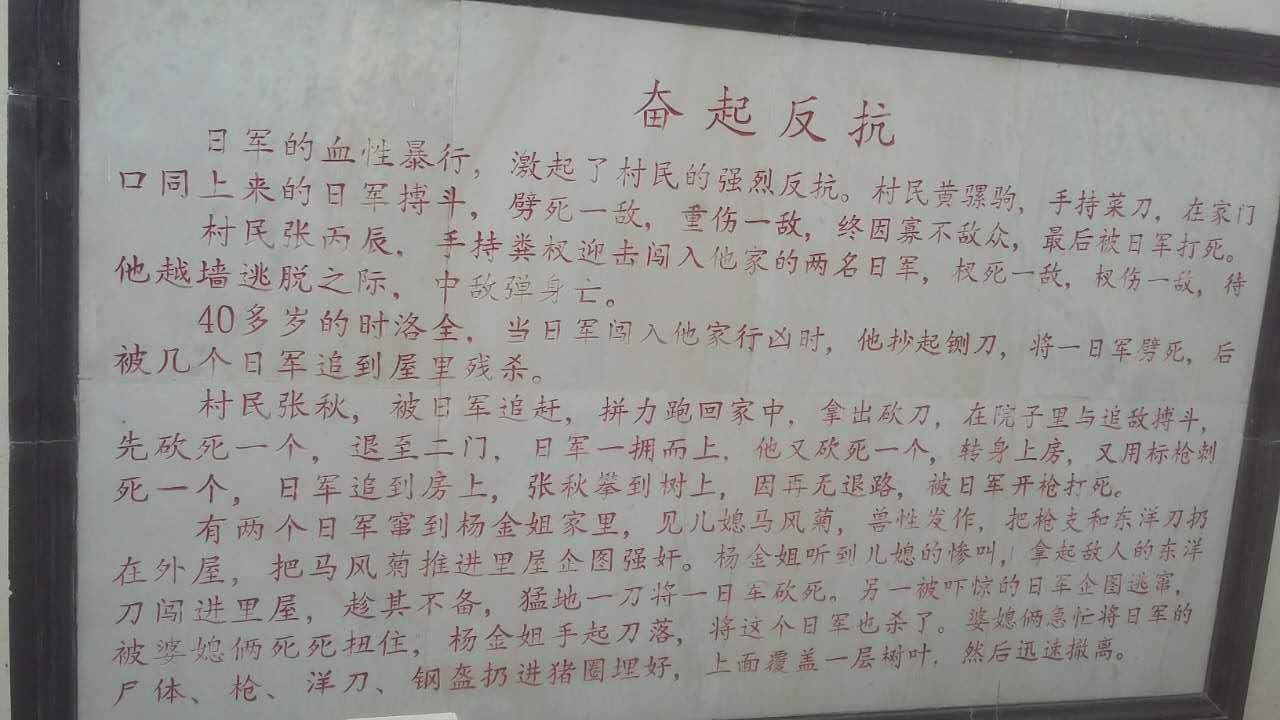 奋起反抗
日军的血性暴行，激起了村民的强烈反抗。村民黄骡驹，手持菜刀，在家门
口同上来的日军搏斗，劈死一敌，重伤一敌，终因寡不敌众，最后被日军打死。
村民张丙辰，手持粪杈迎击闯入他家的两名日军，杈死一敌，杈伤一敌，待
他越墙逃脱之际，中敌弹身亡。
40多岁的时洛全，当日军闯入他家行凶时，他抄起铡刀，将一日军劈死，后
被几个日军追到屋里残杀。
村民张秋，被日军追赶，拼力跑回家中，拿出砍刀，在院子里与追敌搏斗，
先砍死一个，退至二门，日军一拥而上，他又砍死一个，转身上房，又用标枪刺
死一个，日军追到房上，张秋攀到树上，因再无退路，被日军开枪打死。
有两个日军窜到杨金姐家里，见儿媳马风菊，兽性发作，把枪支和东洋刀扔
在外屋，把马风菊推进里屋企图强奸。杨金姐听到儿媳的惨叫，拿起敌人的东洋
刀闯进里屋，趁其不备，猛地一刀将一日军砍死。另一被吓惊的日军企图逃窜，
被婆媳俩死死扭住，杨金姐手起刀落，将这个日军也杀了。婆媳俩急忙将日军的
尸体、枪、洋刀、钢盔扔进猪圈埋好，上面覆盖一层树叶，然后迅速撤离。